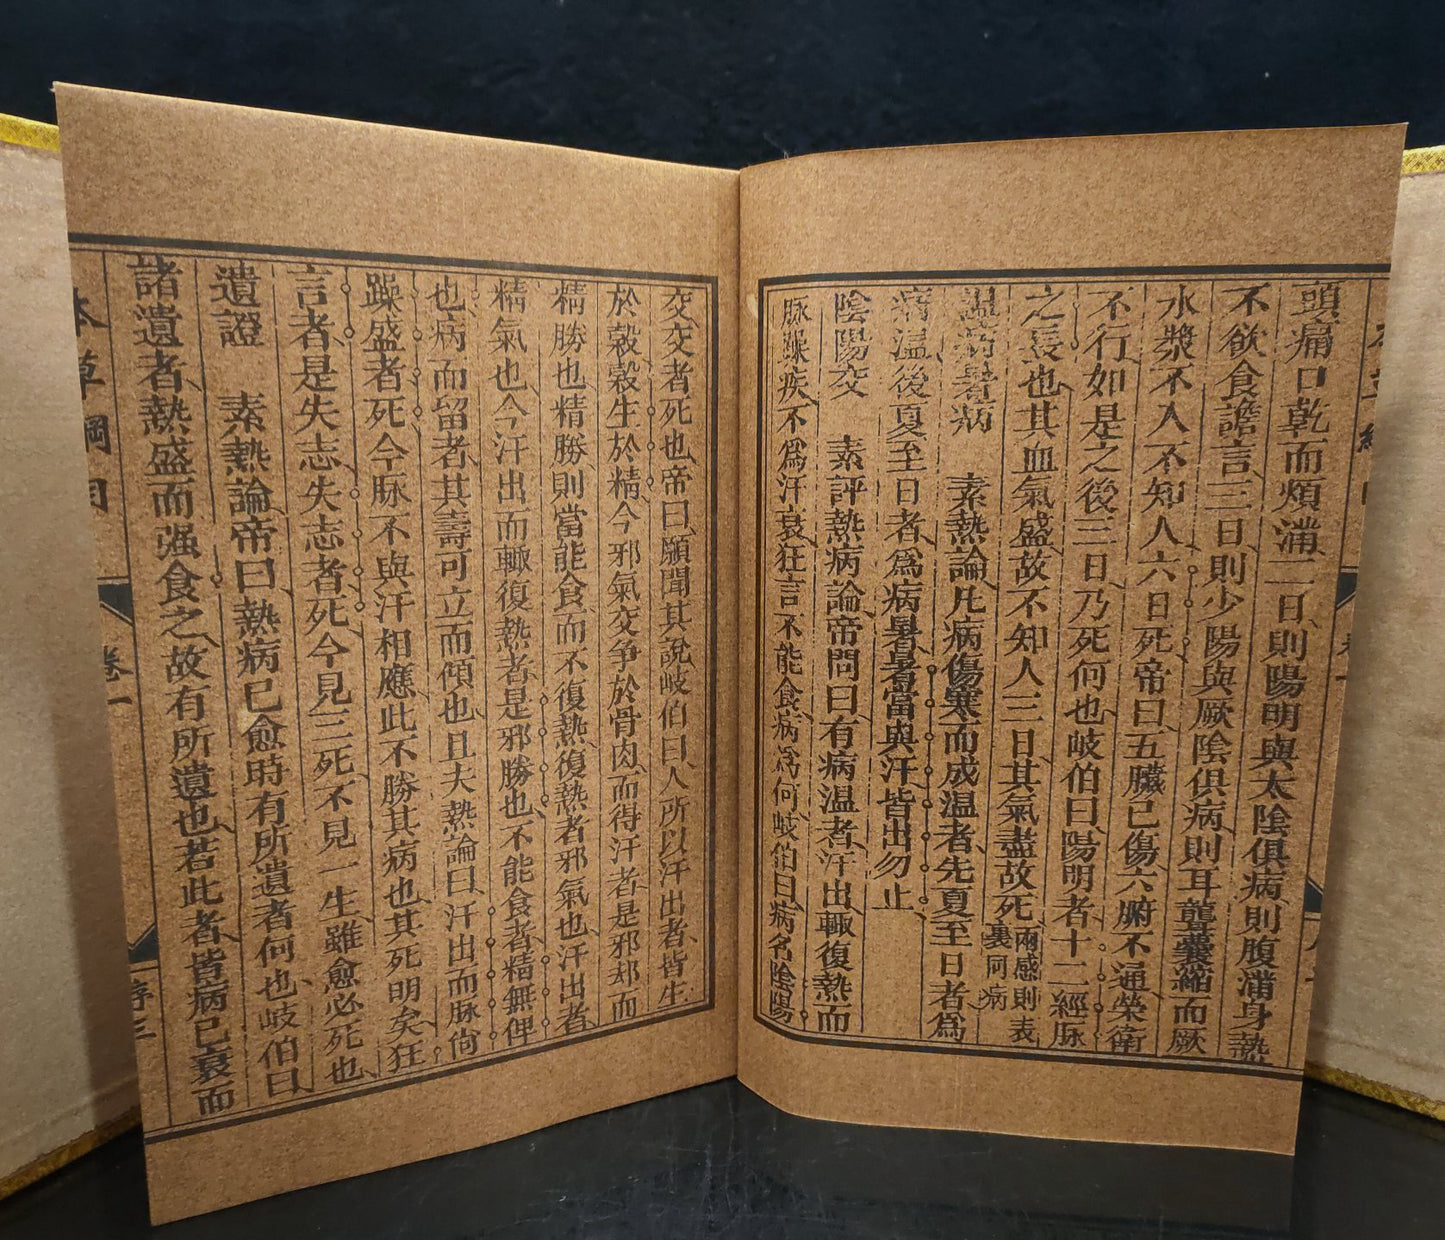 頭痛口乾而煩滿二日則陽明與太陰俱病則腹滿身熱
不欲食譫言三日則少陽與厥陰俱病則耳聾囊縮而厥
水漿不入不知人六日死帝曰五臟已傷六腑不通榮衛
不行如是之後三日乃死何也岐伯曰陽明者十二經脈
之長也其血氣盛故不知人三日其氣盡故死兩感則表
裏同病
溫病暑病　素熱論凡病傷寒而成温者先夏至日者為
病温後夏至日者爲病暑暑當與汗皆出勿止
陰陽交　素評熱病論帝問曰有病温者汗出輙復熱而
脉躁疾不爲汗衰狂言不能食病為何岐伯曰病名陰陽
交交者死也帝曰願聞其說岐伯曰人所以汗出者皆生
於穀穀生於精今邪氣交争於骨肉而得汗者是邪却而
精勝也精勝則當能食而不復熱復熱者邪氣也汗出者
精氣也今汗出而輙復熱者是邪勝也不能食者精無俾
也病而留者其壽可立而傾也且夫熱論曰汗出而脉尚
躁盛者死今脉不與汗相應此不勝其病也其死明矣狂
言者是失志失志者死今見三死不見一生雖愈必死也
遺證　素熱論帝曰熱病已愈時有所遺者何也岐伯曰
諸遺者熱盛而强食之故有所遺也若此者皆病已衰而
本草綱目　卷一　序三